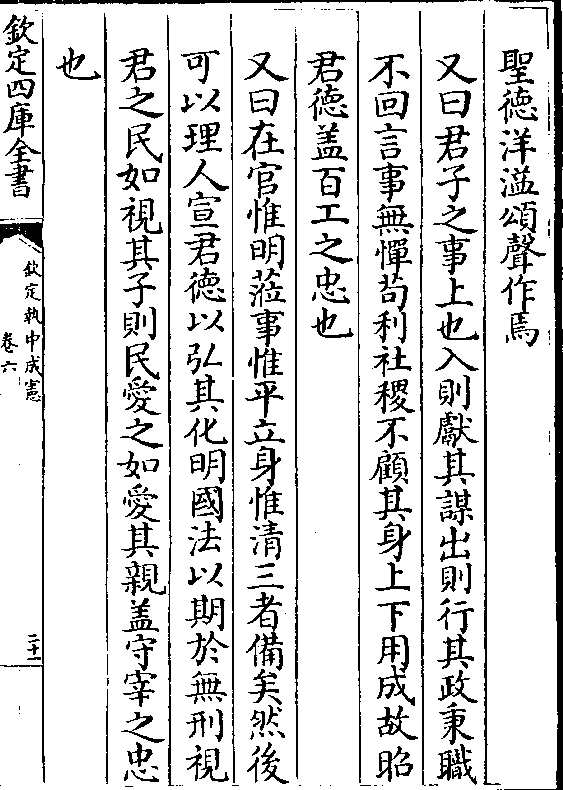 聖德洋溢頌聲作焉
又曰君子之事上也入則獻其謀出則行其政秉職
不回言事無憚苟利社稷不顧其身上下用成故昭
君德盖百工之忠也
又曰在官惟明蒞事惟平立身惟清三者備矣然後
可以理人宣君德以弘其化明國法以期於無刑視
君之民如視其子則民愛之如愛其親盖守宰之忠
也
欽定四庫全書
欽定執中成憲
卷六
二十一